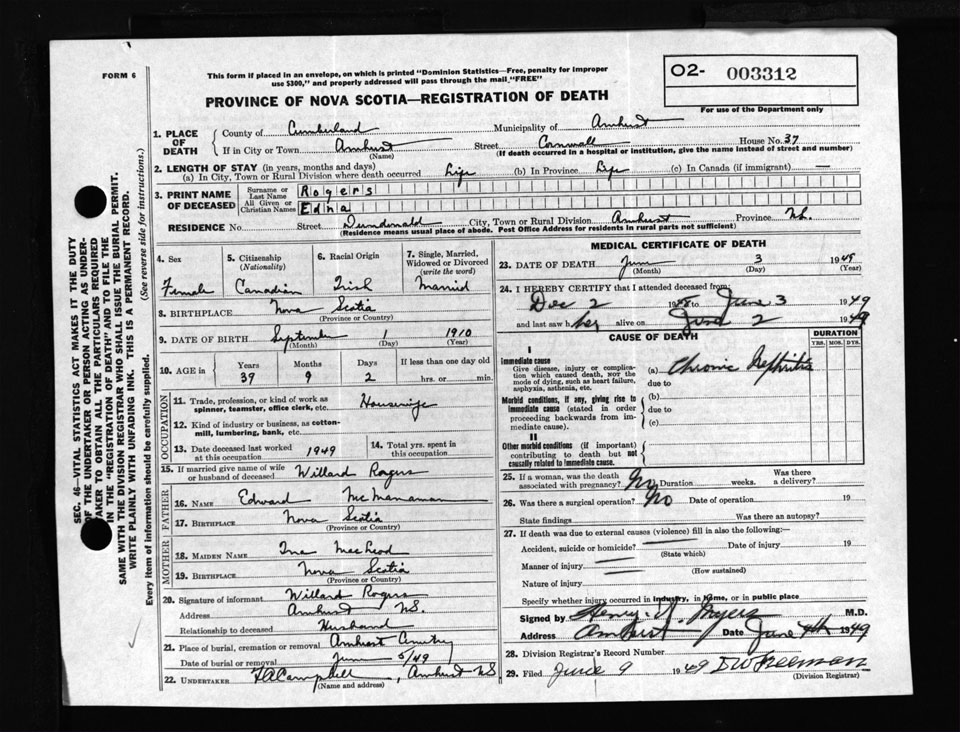 FORM 6
This form if placed in an envelope, on which is printed "Dominion Statistics—Free, penalty for improper
use $300," and properly addressed will pass through the mail "FREE"
02- 003312
For use of the Department only
PROVINCE OF NOVA SCOTIA—REGISTRATION OF DEATH
1. PLACE OF DEATH
County of Cumberland Municipality of Amherst
If in City or Town Amherst Street Cornwall House No. 37
(Name) (If death occurred in a hospital or institution, give the name instead of street and number)
2. LENGTH OF STAY (in years, months and days)
(a) In City, Town or Rural Division where death occurred Life (b) In Province Life (c) In Canada (if immigrant) —
3. PRINT NAME OF DECEASED
Surname or Last Name Rogers
All Given or Christian Names Edna
RESIDENCE No. Street Dundonald City, Town or Rural Division Amherst Province N.S.
(Residence means usual place of abode. Post Office Address for residents in rural parts not sufficient)
4. Sex 5. Citizenship (Nationality) 6. Racial Origin 7. Single, Married, Widowed or Divorced (write the word)
Female Canadian Irish Married
8. BIRTHPLACE Nova Scotia
(Province or Country)
9. DATE OF BIRTH September 1 1910
(Month) (Day) (Year)
10. AGE in Years Months Days If less than one day old
39 9 2 hrs. or min.
OCCUPATION
11. Trade, profession, or kind of work as spinner, teamster, office clerk, etc. Housewife
12. Kind of industry or business, as cotton-mill, lumbering, bank, etc.
13. Date deceased last worked at this occupation 1949 14. Total yrs. spent in this occupation
15. If married give name of wife or husband of deceased Willard Rogers
FATHER
16. NAME Edward McManaman
17. BIRTHPLACE Nova Scotia
(Province or Country)
MOTHER
18. MAIDEN NAME Ina MacLeod
19. BIRTHPLACE Nova Scotia
(Province or Country)
20. Signature of informant Willard Rogers
Address Amherst N.S.
Relationship to deceased Husband
21. Place of burial, cremation or removal Amherst Cemetery
Date of burial or removal June 5/49
22. UNDERTAKER FACampbell, Amherst NS
(Name and address)
MEDICAL CERTIFICATE OF DEATH
23. DATE OF DEATH June 3 1949
(Month) (Day) (Year)
24. I HEREBY CERTIFY that I attended deceased from:
Dec 2 1948 to June 3 1949
and last saw her alive on June 2 1949
CAUSE OF DEATH DURATION
YRS. MOS. DYS.
I
Immediate cause
Give disease, injury or complication which caused death, not the mode of dying, such as heart failure, asphyxia, asthenia, etc.
(a) Chronic Nephritis
due to
Morbid conditions, if any, giving rise to immediate cause (stated in order proceeding backwards from immediate cause).
(b)
due to
(c)
II
Other morbid conditions (if important) contributing to death but not causally related to immediate cause.
25. If a woman, was the death associated with pregnancy? No Duration weeks. Was there a delivery?
26. Was there a surgical operation? No Date of operation 19
State findings Was there an autopsy?
27. If death was due to external causes (violence) fill in also the following:—
Accident, suicide or homicide? Date of injury 19
(State which)
Manner of injury
(How sustained)
Nature of injury
Specify whether injury occurred in industry, in home, or in public place
Signed by Henry A. Myers M.D.
Address Amherst Date June 4th 1949
28. Division Registrar's Record Number
29. Filed June 9 1949 DW Freeman
(Division Registrar)
SEC. 46—VITAL STATISTICS ACT MAKES IT THE DUTY
OF THE UNDERTAKER OR PERSON ACTING AS UNDERTAKER TO OBTAIN ALL THE PARTICULARS REQUIRED
IN THE "REGISTRATION OF DEATH" AND TO FILE THE
SAME WITH THE DIVISION REGISTRAR WHO SHALL ISSUE THE BURIAL PERMIT.
WRITE PLAINLY WITH UNFADING INK. THIS IS A PERMANENT RECORD.
Every item of information should be carefully supplied. (See reverse side for instructions.)